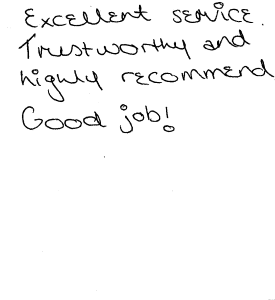 Excellent service.
Trustworthy and
highly recommend
Good job!